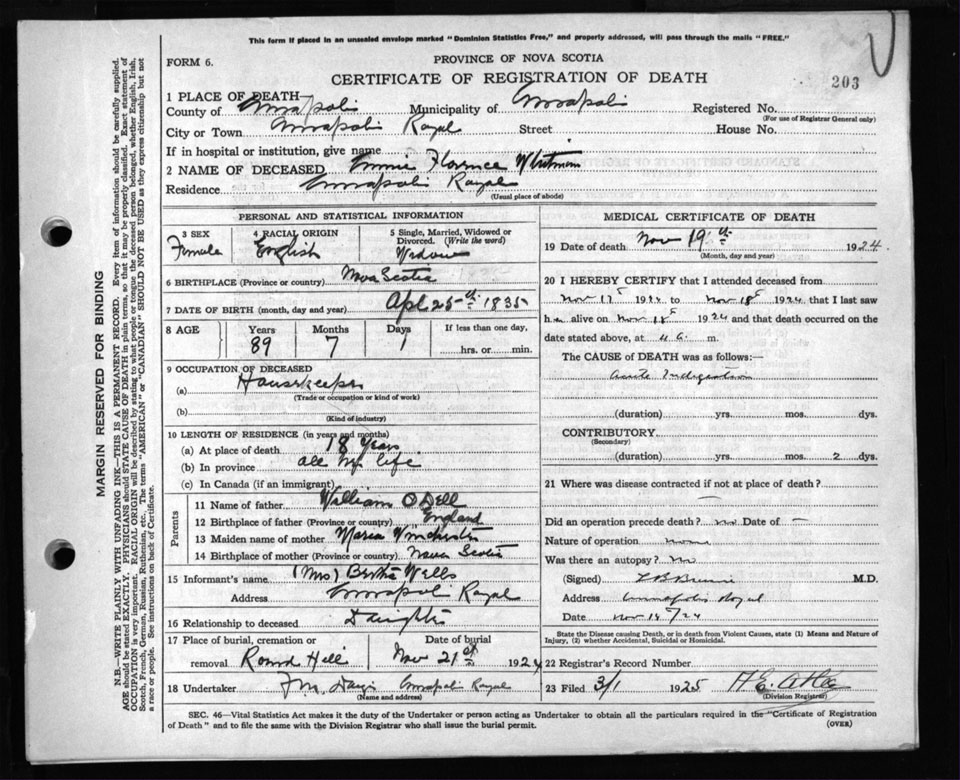 This form if placed in an unsealed envelope marked "Dominion Statistics Free," and properly addressed, will pass through the mails "FREE."
FORM 6.
PROVINCE OF NOVA SCOTIA
CERTIFICATE OF REGISTRATION OF DEATH
203
1 PLACE OF DEATH—
County of Annapolis Municipality of Annapolis Registered No.
(For use of Registrar General only)
City or Town Annapolis Royal Street House No.
If in hospital or institution, give name
2 NAME OF DECEASED Florence Whitman
Residence Annapolis Royal
(Usual place of abode)
PERSONAL AND STATISTICAL INFORMATION
3 SEX Female
4 RACIAL ORIGIN English
5 Single, Married, Widowed or Divorced. (Write the word) Widow
6 BIRTHPLACE (Province or country) Nova Scotia
7 DATE OF BIRTH (month, day and year) Apl 25th 1835
8 AGE Years 89 Months 7 Days 1 If less than one day, hrs. or min.
9 OCCUPATION OF DECEASED
(a) Housekeeper
(Trade or occupation or kind of work)
(b)
(Kind of industry)
10 LENGTH OF RESIDENCE (in years and months)
(a) At place of death 18 years
(b) In province all life
(c) In Canada (if an immigrant)
Parents
11 Name of father William O Dell
12 Birthplace of father (Province or country) England
13 Maiden name of mother Maria Winchester
14 Birthplace of mother (Province or country) Nova Scotia
15 Informant's name (Mrs) Bertha Wells
Address Annapolis Royal
16 Relationship to deceased Daughter
17 Place of burial, cremation or removal Round Hill Date of burial Nov 21st 1924
18 Undertaker Annapolis Royal
(Name and address)
MEDICAL CERTIFICATE OF DEATH
19 Date of death Nov 19th 1924.
(Month, day and year)
20 I HEREBY CERTIFY that I attended deceased from
Nov 1924 to Nov 18 1924 that I last saw
h alive on Nov 18 1924 and that death occurred on the
date stated above, at m.
The CAUSE of DEATH was as follows:—
Acute Indigestion
(duration) yrs. mos. dys.
CONTRIBUTORY
(Secondary)
(duration) yrs. mos. 2 dys.
21 Where was disease contracted if not at place of death?
Did an operation precede death? no Date of —
Nature of operation none
Was there an autopsy? No
(Signed) M.D.
Address Annapolis Royal
Date Nov /24
State the Disease causing Death, or in death from Violent Causes, state (1) Means and Nature of Injury, (2) whether Accidental, Suicidal or Homicidal.
22 Registrar's Record Number
23 Filed 3/1 1925
(Division Registrar)
SEC. 46—Vital Statistics Act makes it the duty of the Undertaker or person acting as Undertaker to obtain all the particulars required in the "Certificate of Registration
of Death" and to file the same with the Division Registrar who shall issue the burial permit.
(OVER)
MARGIN RESERVED FOR BINDING
N.B.—WRITE PLAINLY WITH UNFADING INK—THIS IS A PERMANENT RECORD. Every item of information should be carefully supplied.
AGE should be stated EXACTLY. PHYSICIANS should STATE CAUSE OF DEATH in plain terms, so that it may be properly classified. Exact statement of
OCCUPATION is very important. RACIAL ORIGIN will be described by stating to what people or tongue the deceased person belonged, whether English, Irish,
Scotch, French, German, Russian, Ruthenian, etc. The terms "AMERICAN" or "CANADIAN" SHOULD NOT BE USED as they express citizenship but not
a race or people. See instructions on back of Certificate.